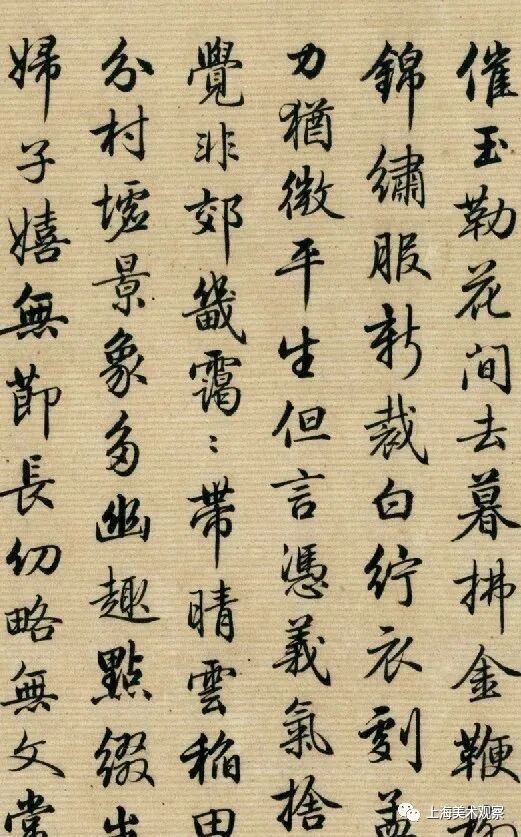 催玉勒花間去暮拂金鞭
錦繡服新裁白紵衣剗
力猶微平生但言憑義氣捨
覺非郊畿靄〻帶晴雲稻田
分村墟景象多幽趣點綴
婦子嬉無節長幼略無文常
上海美术观察